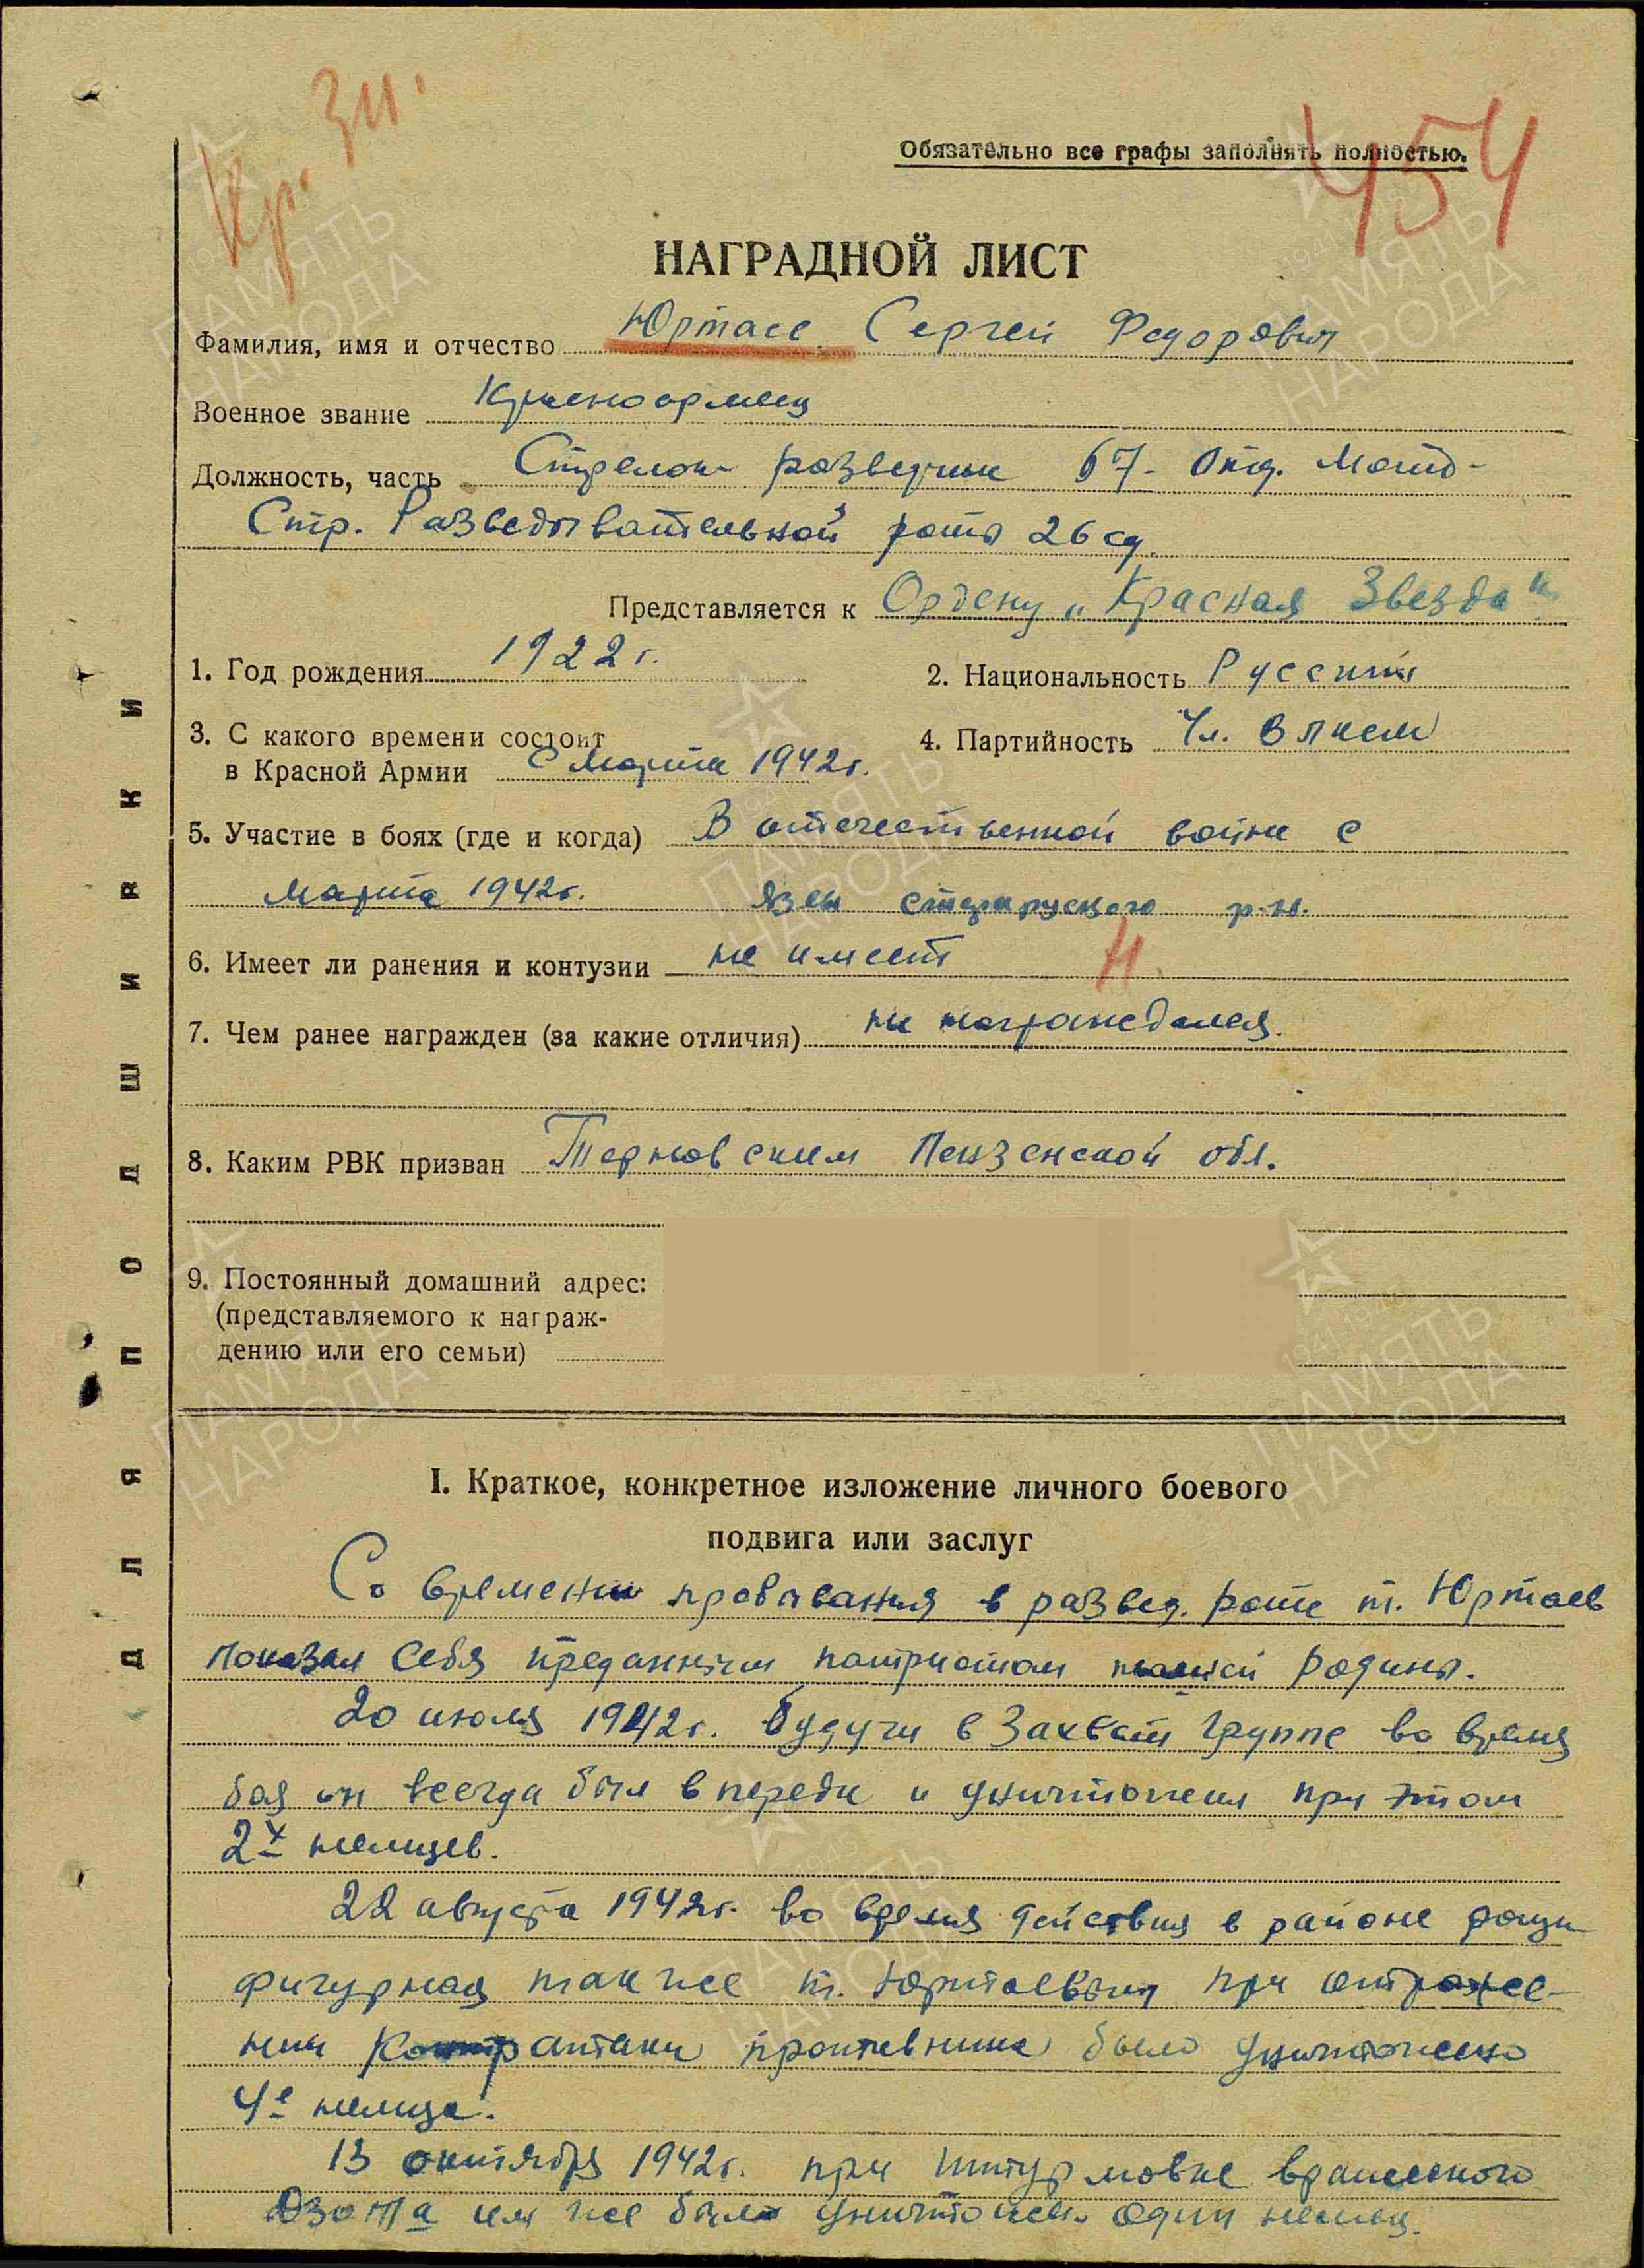 Кр. Зн.
454
Обязательно все графы заполнять полностью.
НАГРАДНОЙ ЛИСТ
Фамилия, имя и отчество Юртаев Сергей Федорович
Военное звание Красноармеец
Должность, часть Стрелок разведчик 67- Отд. Мото-
Стр. Разведывательной роты 26 сд.
Представляется к Ордену „Красная Звезда"
1. Год рождения 1922 г. 2. Национальность Русский
3. С какого времени состоит
в Красной Армии С Марта 1942г. 4. Партийность Чл. ВЛКСМ
5. Участие в боях (где и когда) В отечественной войне с
Марта 1942г. СЗФ Старорусского р-н.
6. Имеет ли ранения и контузии не имеет
Н.
7. Чем ранее награжден (за какие отличия) не награждался.
8. Каким РВК призван Терновским Пензенской обл.
9. Постоянный домашний адрес:
(представляемого к награж-
дению или его семьи)
ДЛЯ ПОДШИВКИ
I. Краткое, конкретное изложение личного боевого
подвига или заслуг
Со времени пребывания в развед. роте т. Юртаев
показал себя преданным патриотом нашей родины.
20 июля 1942г. будучи в Захват группе во время
боя он всегда был в переди и уничтожил при этом
2х немцев.
22 августа 1942г. во время действия в районе рощи
фигурная так же т. Юртаевым при отраже-
нии Контратаки противника было уничтожено
4е немца.
13 октября 1942г. при штурмовке вражеского
Дзота им же было уничтожен один немец.
ПАМЯТЬ
НАРОДА